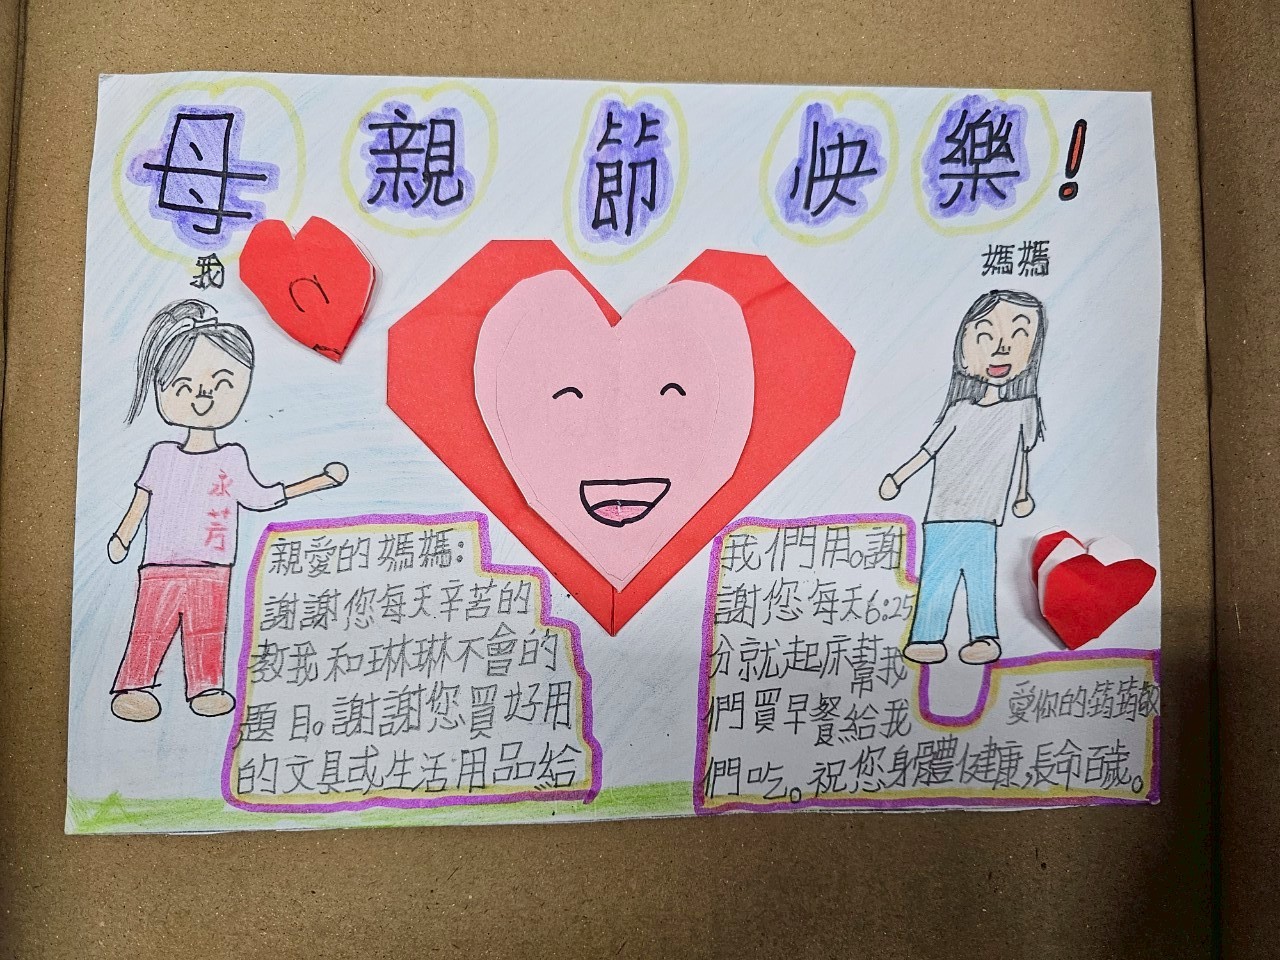 母親節快樂!
我
媽媽
永芳
親愛的媽媽:
謝謝您每天辛苦的
教我和琳琳不會的
題目。謝謝您買好用
的文具或生活用品給
我們用。謝
謝您每天6:25
分就起床幫我
們買早餐給我
們吃。祝您身體健康,長命百歲。
愛你的:筠筠敬